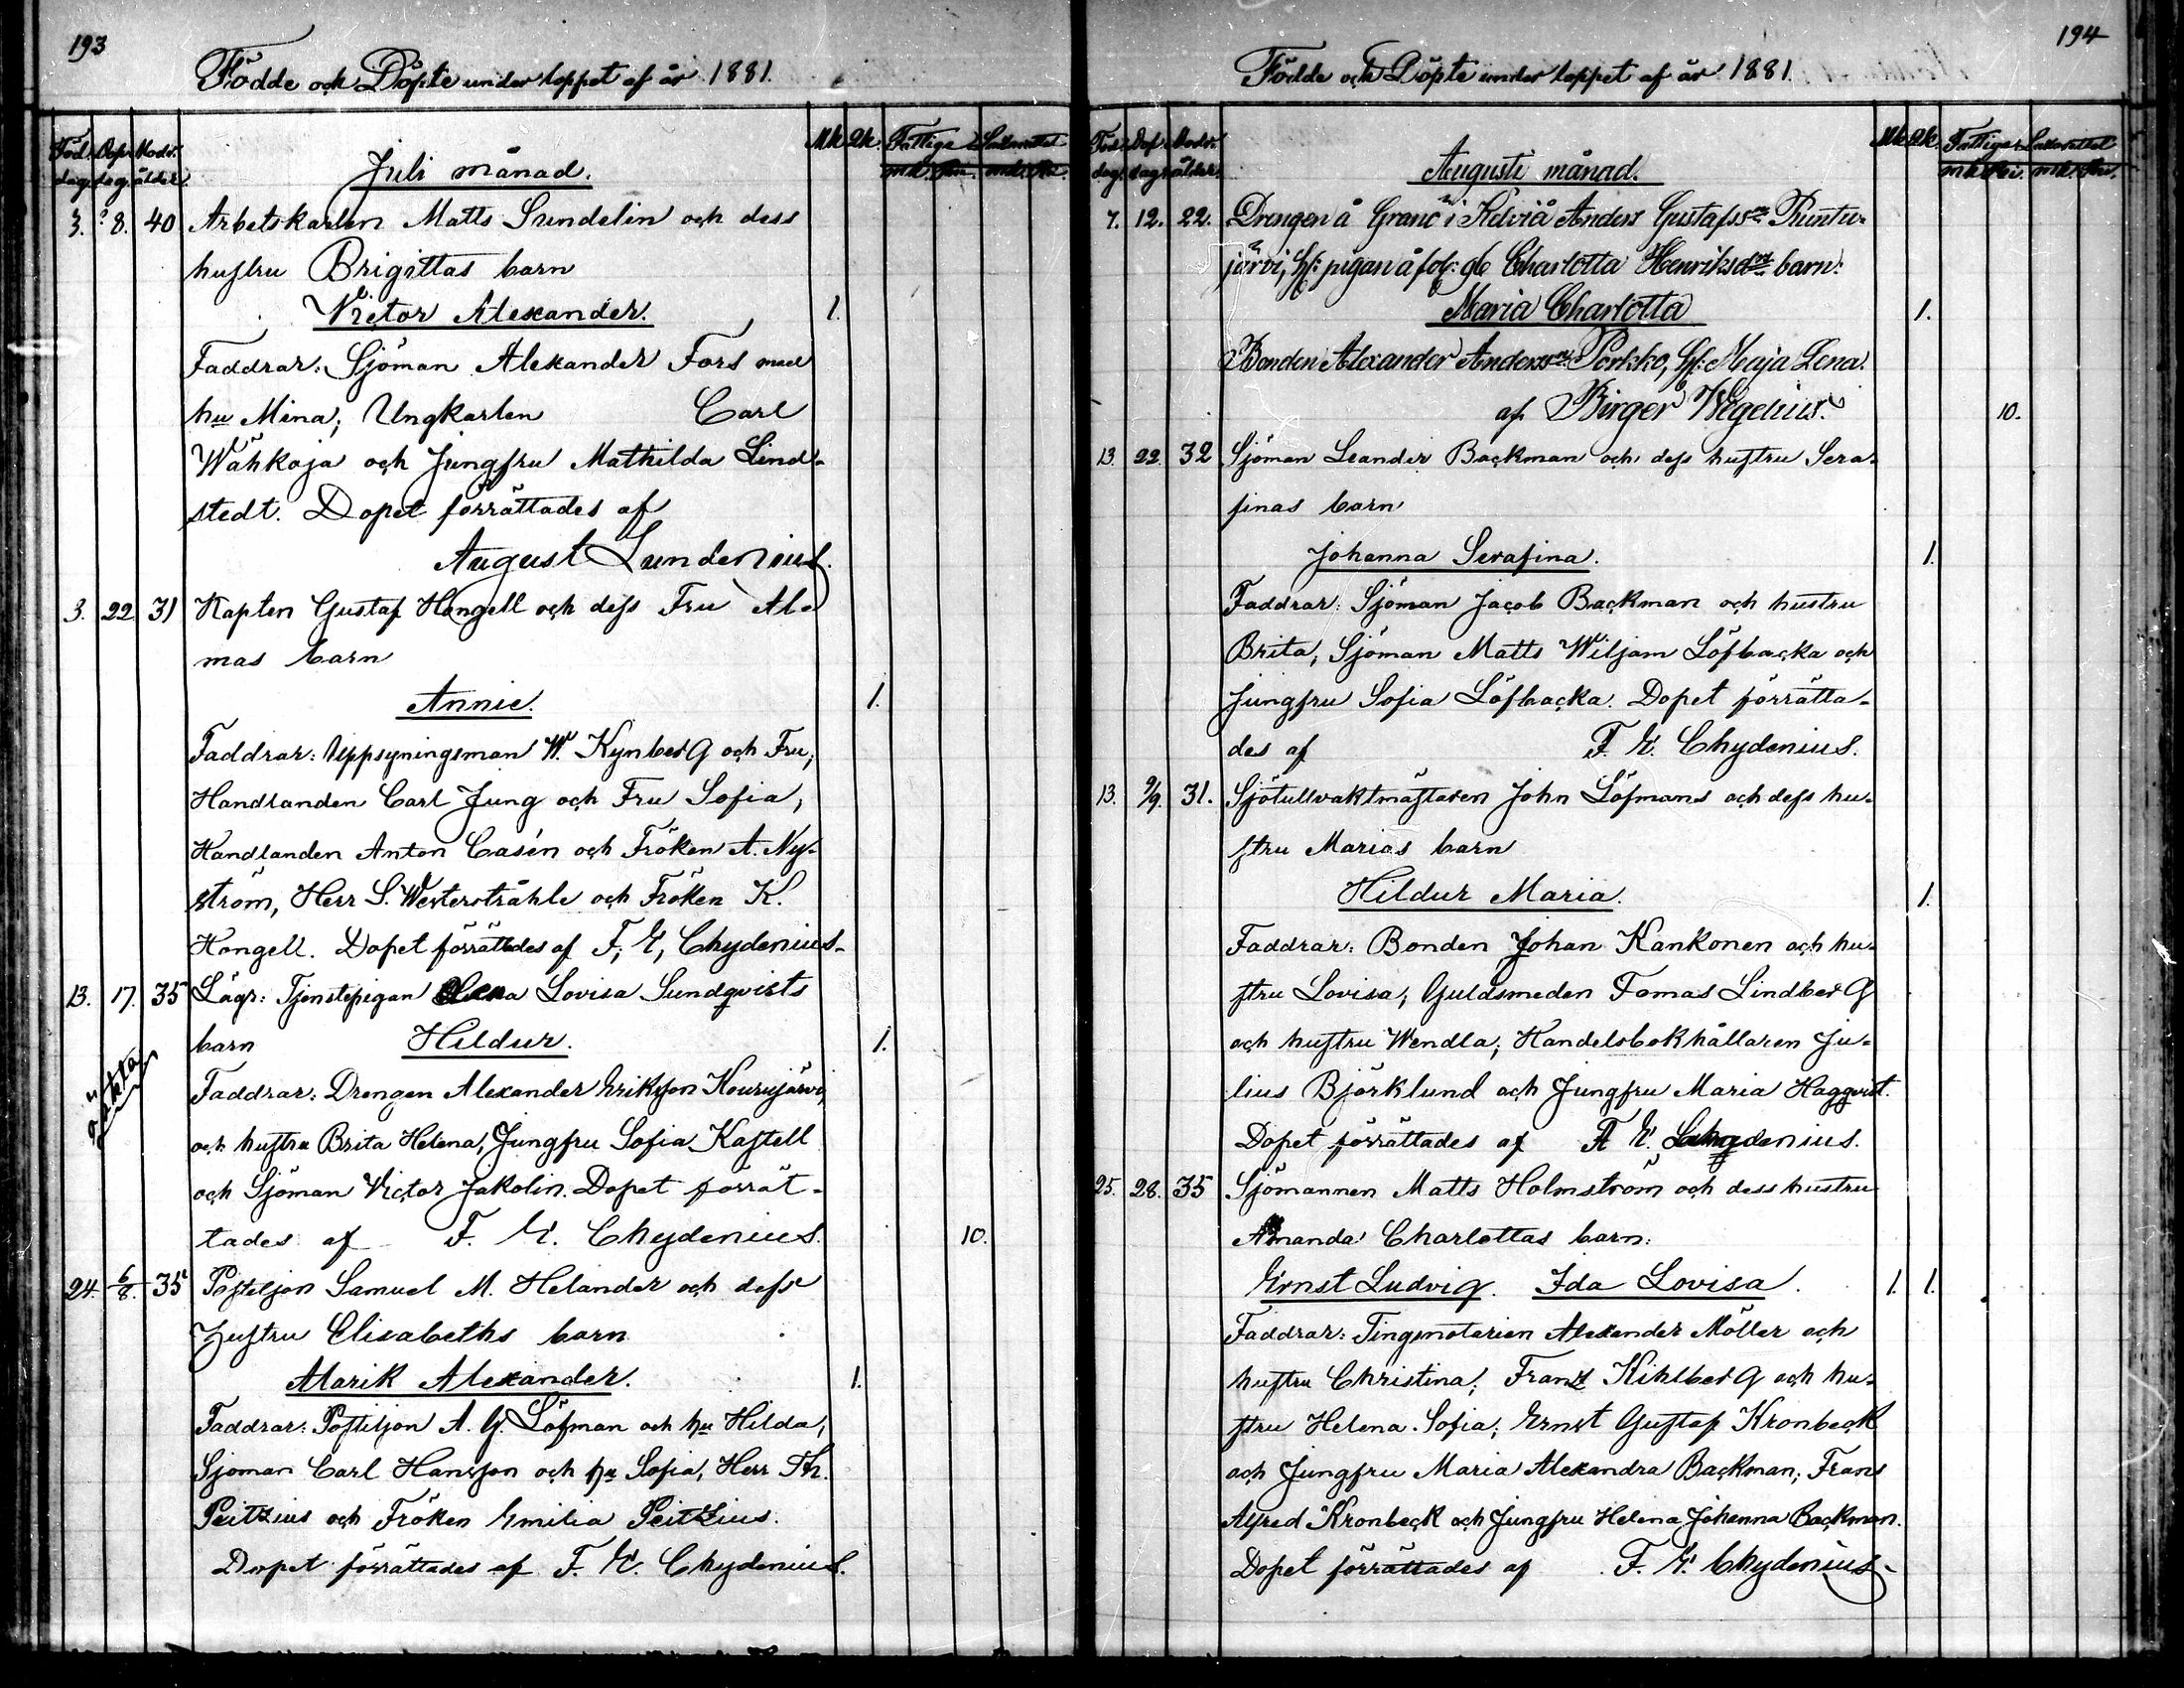 193
Födde och Döpte under loppet af år 1881.
Föd. dag. Döp. dag. Modr. ålder. Mk. Qk. Fattiga Lasarettet
mk. pni. mk. pni.
Juli månad.
3. 8. 40 Arbetskarlen Matts Sundelin och dess
hustru Brigittas barn
Victor Alexander. 1.
Faddrar: Sjöman Alexander Fors med
hu Mina; Ungkarlen Carl
Wähkoja och Jungfru Mathilda Lind-
stedt. Dopet förrättades af
August Lundenius.
3. 22. 31 Kapten Gustaf Hongell och dess Fru Al-
mas barn
Annie. 1.
Faddrar: Uppsyningsman W. Kynberg och Fru,
Handlanden Carl Jung och Fru Sofia,
Handlanden Anton Casén och Fröken A. Ny-
ström, Herr S. Westerstråhle och Fröken K.
Hongell. Dopet förrättades af F. E. Chydenius.
13. 17. 35 Lägr: Tjenstepigan Lovisa Sundqvists
oäkta
barn Hildur. 1.
Faddrar: Drengen Alexander Eriksson Kourujärvi,
och hustru Brita Helena, Jungfru Sofia Kastell
och Sjöman Victor Jakolin. Dopet förrät-
tades af F. E. Chydenius. 10.
24. 6/8. 35 Postiljon Samuel M. Helander och dess
Hustru Elisabeths barn
Alarik Alexander. 1.
Faddrar: Postiljon A. G. Löfman och hu Hilda,
Sjöman Carl Hansson och hu Sofia, Herr Th.
Peitzius och Fröken Emilia Peitzius.
Dopet förrättades af F. E. Chydenius.
194
Födde och Döpte under loppet af år 1881.
Föd. dag. Döp. dag. Modr. ålder. Mk. Qk. Fattiga Lasarettet
mk. pni. mk. pni.
Augusti månad.
7. 12. 22. Drengen å Granö i Kelviå Anders Gustafsson Runtu-
järvi, hf: pigan å Charlotta Henriksdotter barn:
Maria Charlotta 1.
Bonden Alexander Andersson Porkko, hf: Maja Lena.
af Birger Wegelius. 10.
13. 22. 32 Sjöman Leander Backman och dess hustru Sera-
finas barn
Johanna Serafina. 1.
Faddrar: Sjöman Jacob Backman och hustru
Brita, Sjöman Matts Wiljam Löfbacka och
Jungfru Sofia Löfbacka. Dopet förrätta-
des af F. E. Chydenius.
13. 9/9. 31. Sjötullvaktmästaren John Löfmans och dess hu-
stru Marias barn
Hildur Maria. 1.
Faddrar: Bonden Johan Kankonen och hu-
stru Lovisa, Guldsmeden Tomas Lindberg
och hustru Wendla; Handelsbokhållaren Ju-
lius Björklund och Jungfru Maria Haggqvist.
Dopet förrättades af F. E. Chydenius.
25. 28. 35 Sjömannen Matts Holmström och dess hustru
Amanda Charlottas barn:
Ernst Ludvig. Ida Lovisa. 1. 1.
Faddrar: Tingsnotarien Alexander Möller och
hustru Christina; Franz Kihlberg och hu-
stru Helena Sofia; Ernst Gustaf Kronbeck
och Jungfru Maria Alexandra Backman; Frans
Alfred Kronbeck och Jungfru Helena Johanna Backman.
Dopet förrättades af F. E. Chydenius.